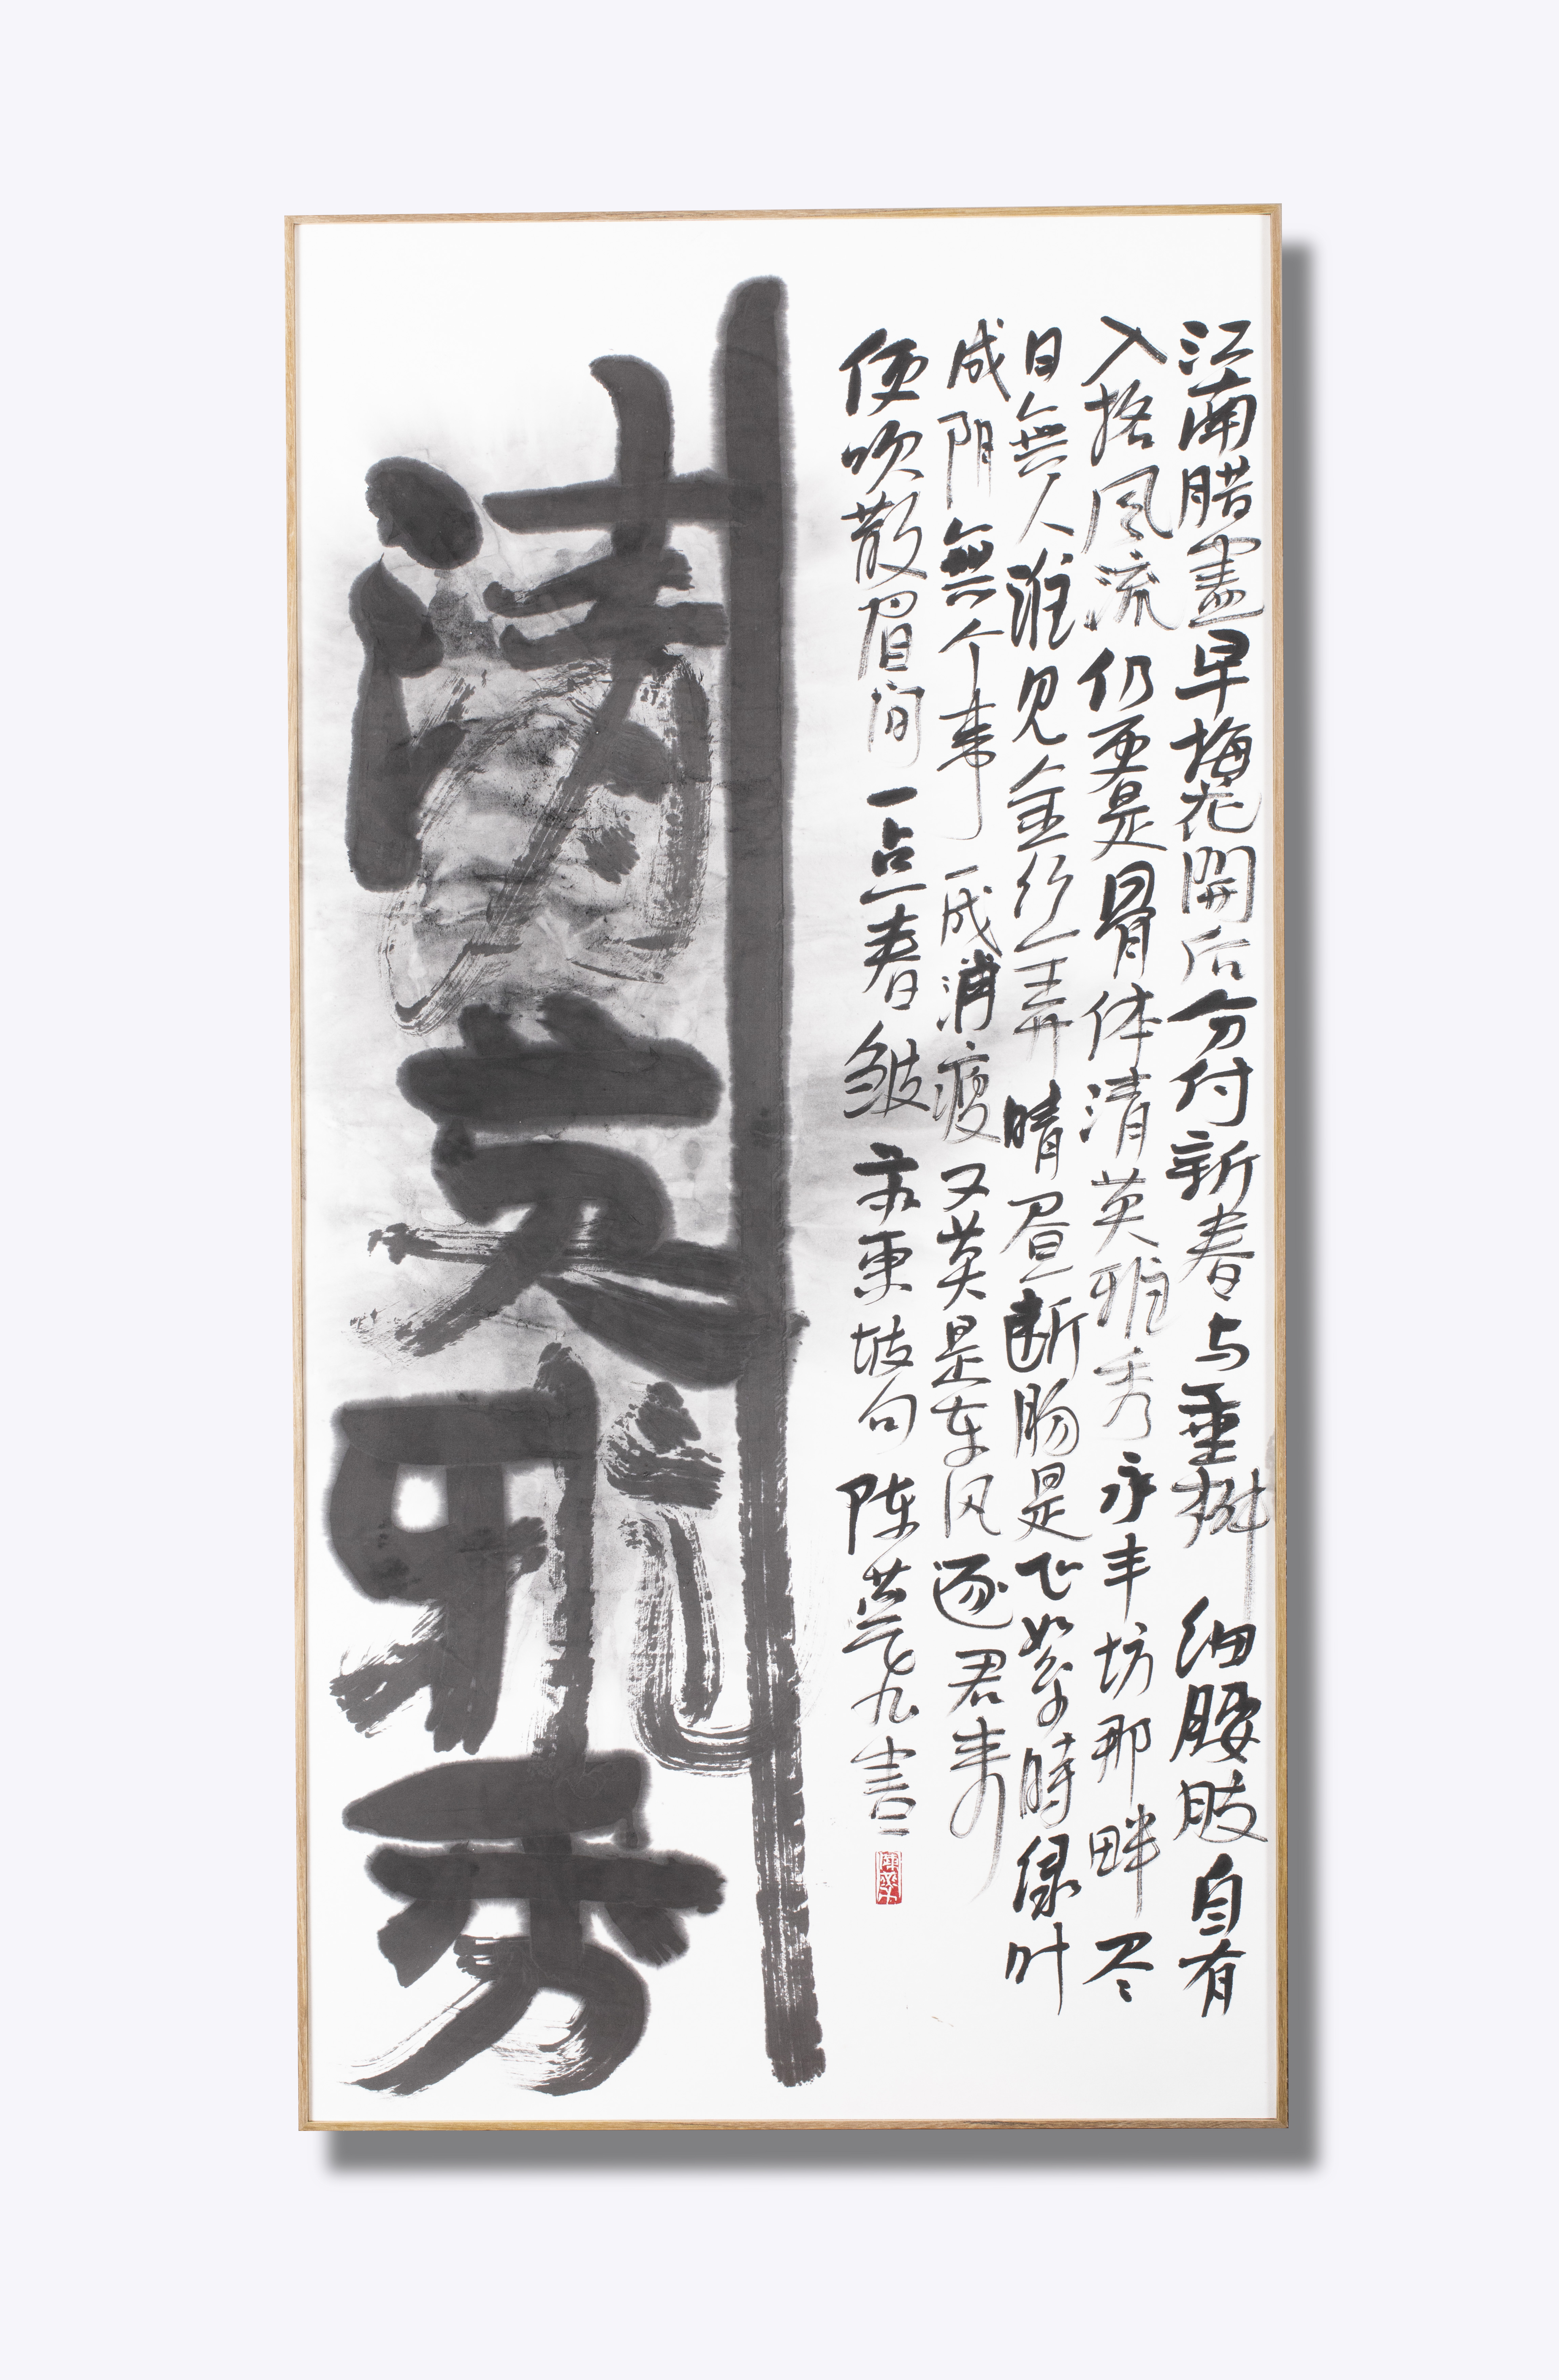 江南腊盡早梅花開后分付新春与垂柳细腰肢自有
入格風流仍更是骨体清英雅秀永丰坊那畔尽
日無人谁见金丝弄晴昼断肠是飞絮時绿叶
成阴無个事一成消瘦又莫是东风逐君来
便吹散眉间一点春皱东坡句陈九書
清英雅秀